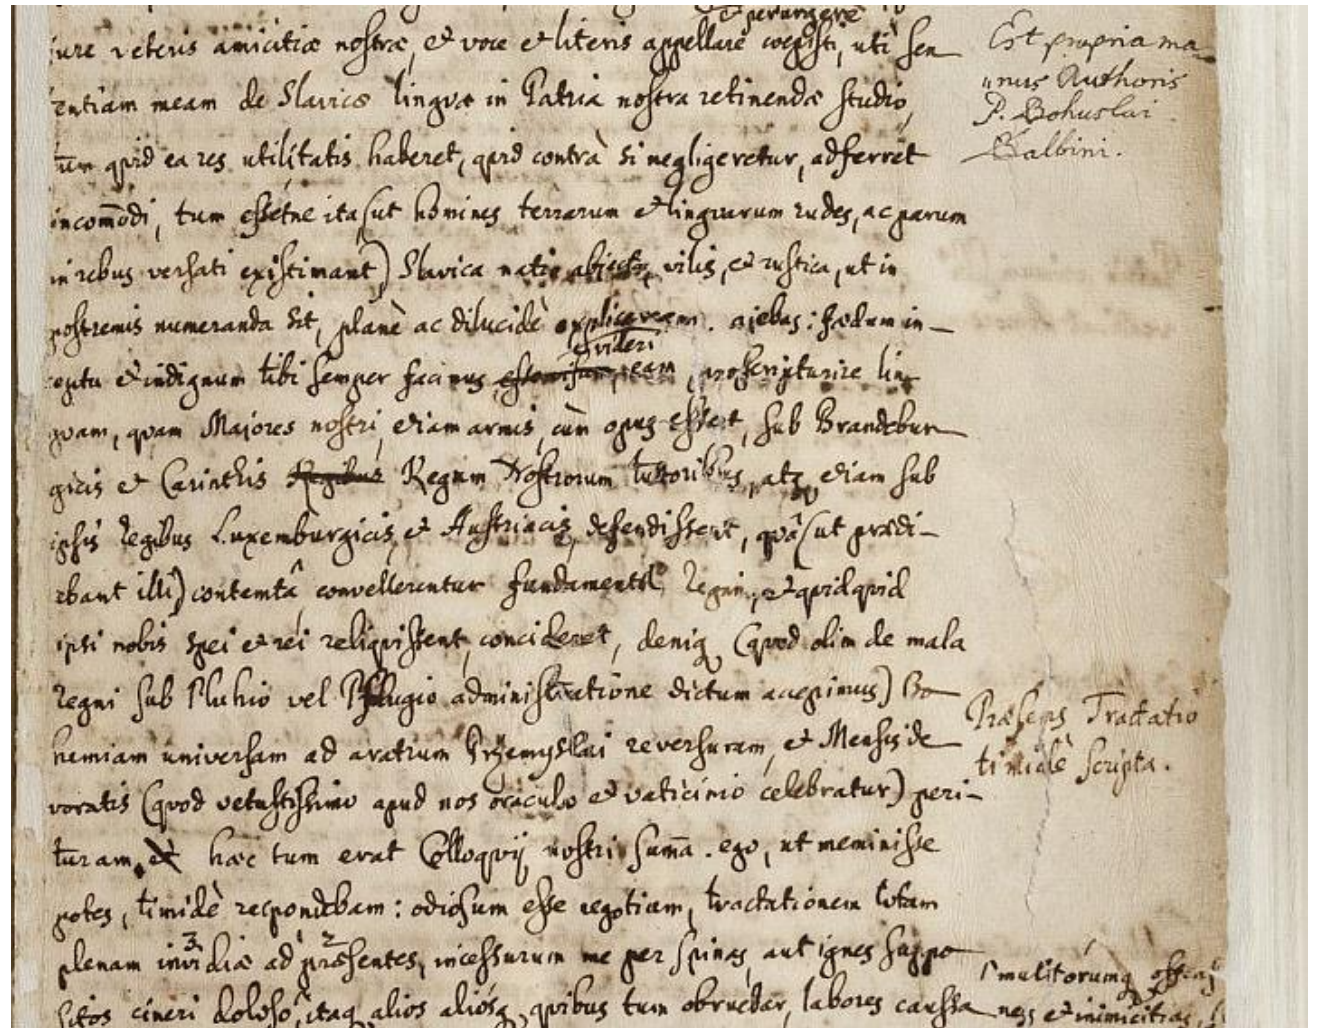 & perurgere
iure veteris amicitiæ nostræ, et voce et literis appellare coepisti, uti sen
tentiam meam de Slavicæ linguæ in Patria nostra retinendæ studio,
tum quid ea res utilitatis haberet, quid contrà si negligeretur, adferret
incom̄odi, tum essetne ita (ut homines terrarum et linguarum rudes, ac parum
in rebus versati existimant) Slavica natio abjecta, vilis, et rustica, ut in
postremis numeranda sit, planè ac dilucidè explicarem. ajebas: fædum in-
videri
optu et indignum tibi semper facinus, proscripturire lin
guam, quam Majores nostri, etiam armis, cùm opus esset, sub Brandebur
gicis et Carinthis Regibus Regum Nostrorum tutoribus, atq etiam sub
ipsis Regibus Luxemburgicis, et Austriacis, defendissent, quâ (ut prædi-
cabant illi) contemtâ convellerentur fundamenta Regni, et quidquid
ipsi nobis spei et rei reliquissent, concideret, deniq (quod olim de mala
regni sub Pluhio vel Pflugio administratione dictum accepimus) Bo
hemiam universam ad aratrum Przemyslai reversuram, et Mensis de
voratis (quod vetustissimo apud nos oraculo et vaticinio celebratur) peri-
turam. et hæc tum erat Colloquij nostri sum̄a. ego, ut meminisse
potes, timidè respondebam: odiosum esse negotium, tractationem totam
3 2
plenam invidiæ ad præsentes, incessurum me per spinas, aut ignes suppo
sitos cineri doloso, itaq alios aliósq, quibus tum obruebar, labores caussa
Est propria ma
nus Authoris
P. Bohuslai
Balbini.
Præsens Tractatio
timidè scripta.
multorumq offen
nes et inimicitias,